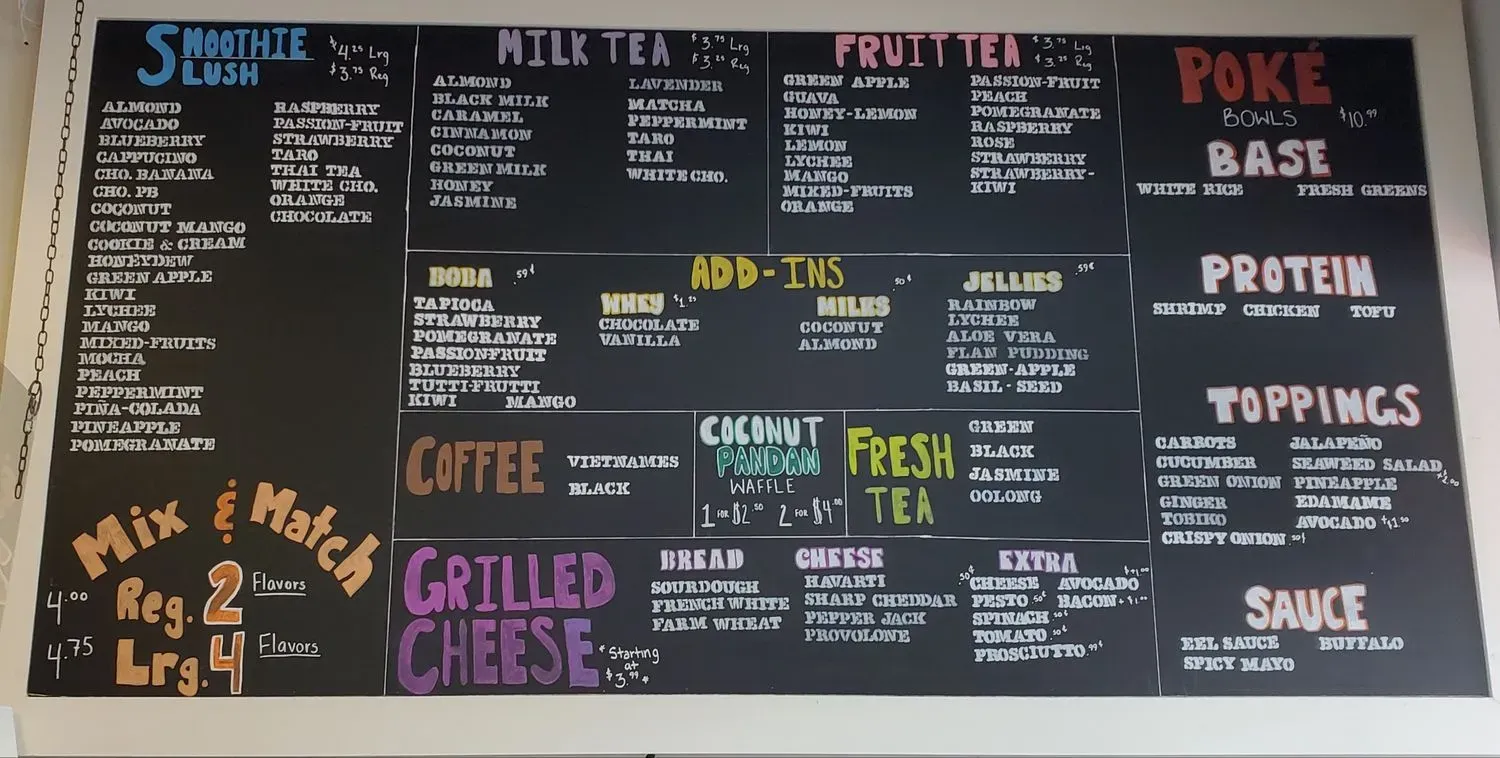 SMOOTHIE
SLUSH
$4.25 Lrg
$3.75 Reg
ALMOND
AVOCADO
BLUEBERRY
CAPPUCINO
CHO. BANANA
CHO. PB
COCONUT
COCONUT MANGO
COOKIE & CREAM
HONEYDEW
GREEN APPLE
KIWI
LYCHEE
MANGO
MIXED-FRUITS
MOCHA
PEACH
PEPPERMINT
PIÑA-COLADA
PINEAPPLE
POMEGRANATE
RASPBERRY
PASSION-FRUIT
STRAWBERRY
TARO
THAI TEA
WHITE CHO.
ORANGE
CHOCOLATE
Mix & Match
4.00 Reg. 2 Flavors
4.75 Lrg. 4 Flavors
MILK TEA
$3.75 Lrg
$3.25 Reg
ALMOND
BLACK MILK
CARAMEL
CINNAMON
COCONUT
GREEN MILK
HONEY
JASMINE
LAVENDER
MATCHA
PEPPERMINT
TARO
THAI
WHITE CHO.
FRUIT TEA
$3.75 Lrg
$3.25 Reg
GREEN APPLE
GUAVA
HONEY-LEMON
KIWI
LEMON
LYCHEE
MANGO
MIXED-FRUITS
ORANGE
PASSION-FRUIT
PEACH
POMEGRANATE
RASPBERRY
ROSE
STRAWBERRY
STRAWBERRY-
KIWI
ADD-INS
BOBA .59¢
TAPIOCA
STRAWBERRY
POMEGRANATE
PASSIONFRUIT
BLUEBERRY
TUTTI-FRUTTI
KIWI MANGO
WHEY $1.25
CHOCOLATE
VANILLA
MILKS .50¢
COCONUT
ALMOND
JELLIES .59¢
RAINBOW
LYCHEE
ALOE VERA
FLAN PUDDING
GREEN-APPLE
BASIL-SEED
COFFEE
VIETNAMES
BLACK
COCONUT
PANDAN
WAFFLE
1 FOR $2.50 2 FOR $4.00
FRESH
TEA
GREEN
BLACK
JASMINE
OOLONG
GRILLED
CHEESE
* Starting
at
$3.99 *
BREAD
SOURDOUGH
FRENCH WHITE
FARM WHEAT
CHEESE
HAVARTI
SHARP CHEDDAR
PEPPER JACK
PROVOLONE
EXTRA
.50¢ CHEESE AVOCADO $+1.00
PESTO .50¢ BACON + $1.00
SPINACH .50¢
TOMATO .50¢
PROSCIUTTO .99¢
POKÉ
BOWLS $10.99
BASE
WHITE RICE FRESH GREENS
PROTEIN
SHRIMP CHICKEN TOFU
TOPPINGS
CARROTS
CUCUMBER
GREEN ONION
GINGER
TOBIKO
CRISPY ONION .50¢
JALAPEÑO
SEAWEED SALAD +$2.00
PINEAPPLE
EDAMAME
AVOCADO +$1.50
SAUCE
EEL SAUCE BUFFALO
SPICY MAYO